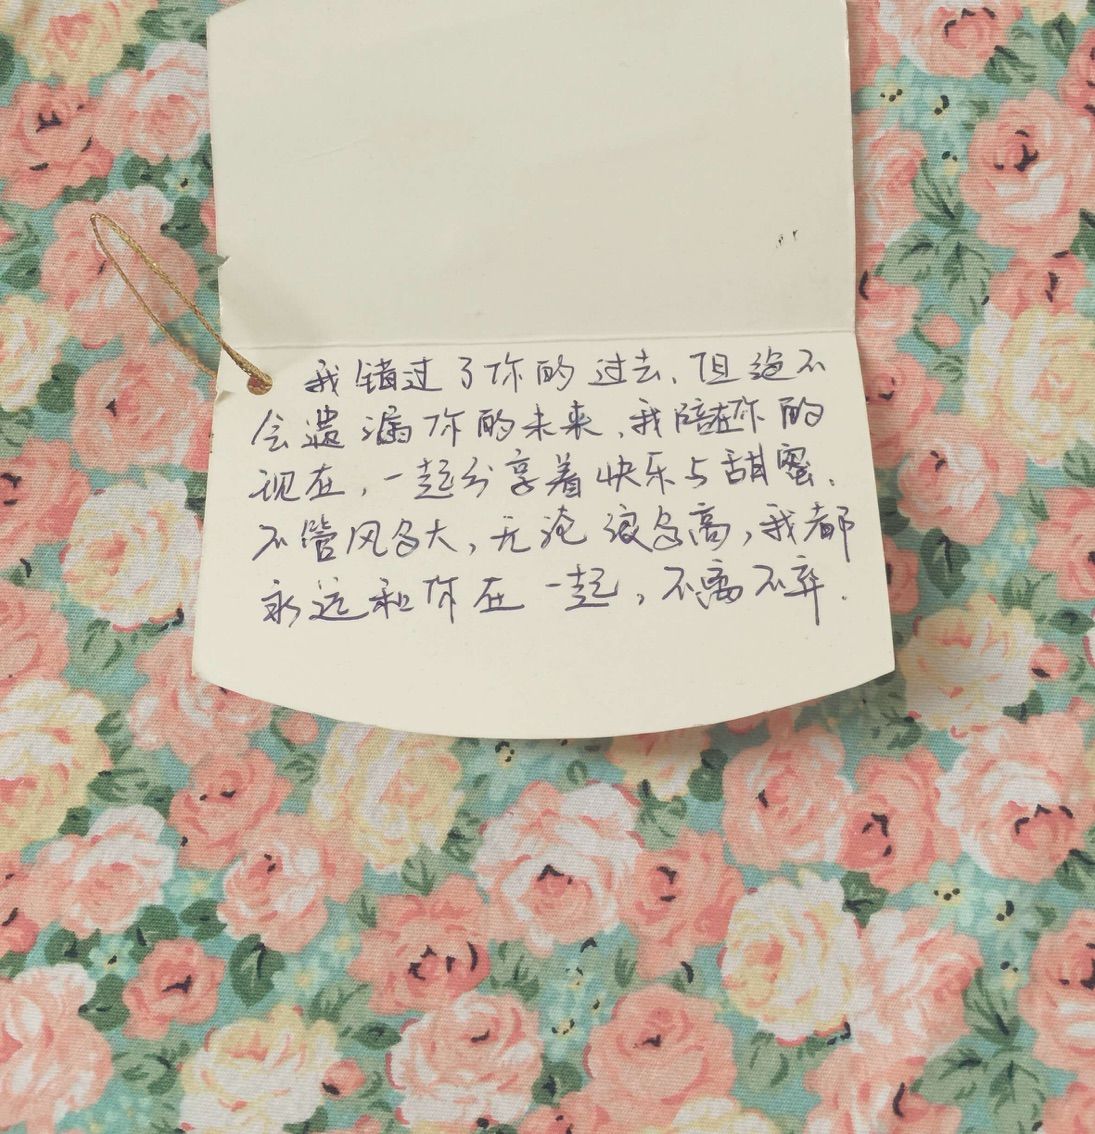 我错过了你的过去,但绝不
会遗漏你的未来,我陪在你的
现在,一起分享着快乐与甜蜜.
不管风多大,无论浪多高,我都
永远和你在一起,不离不弃.